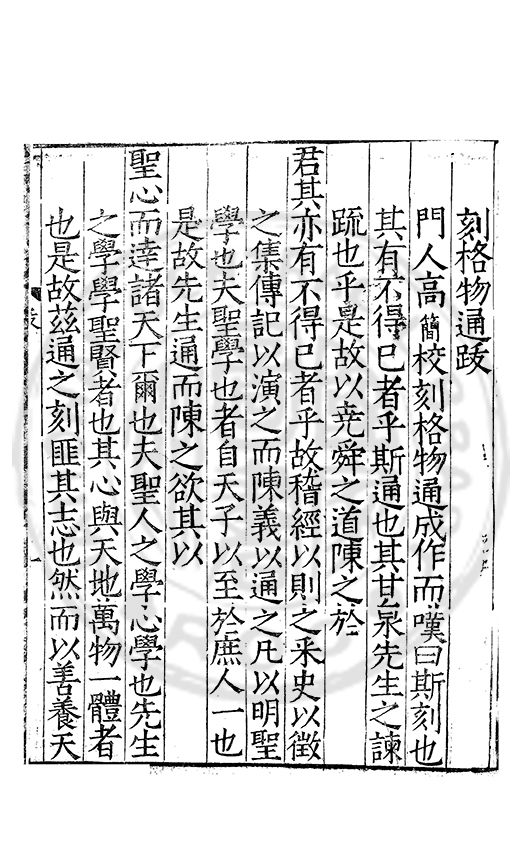 刻格物通跋
門人高簡校刻格物通成作而嘆曰斯刻也
其有不得已者乎斯通也其甘泉先生之諫
疏也乎是故以尭舜之道陳之於
君其亦有不得已者乎故稽經以則之釆史以徵
之集傳記以演之而陳義以通之凡以明聖
學也夫聖學也者自天子以至於庶人一也
是故先生通而陳之欲其以
聖心而達諸天下爾也夫聖人之學心學也先生
之學學聖賢者也其心與天地萬物一體者
也是故茲通之刻匪其志也然而以善養天